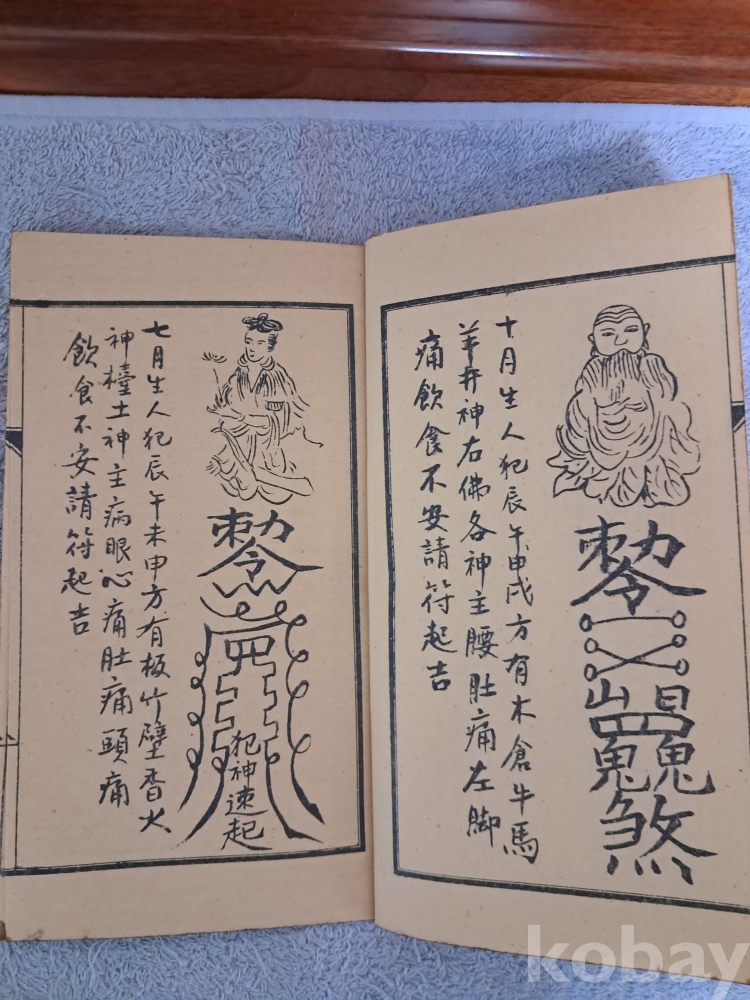 十月生人犯辰午申戌方有木倉牛馬
羊井神右佛各神主腰肚痛左脚
痛飲食不安請符起吉
煞
七月生人犯辰午未申方有板竹壁香火
神檯土神主病眼心痛肚痛頭痛
飲食不安請符起吉
犯神速起
kobay